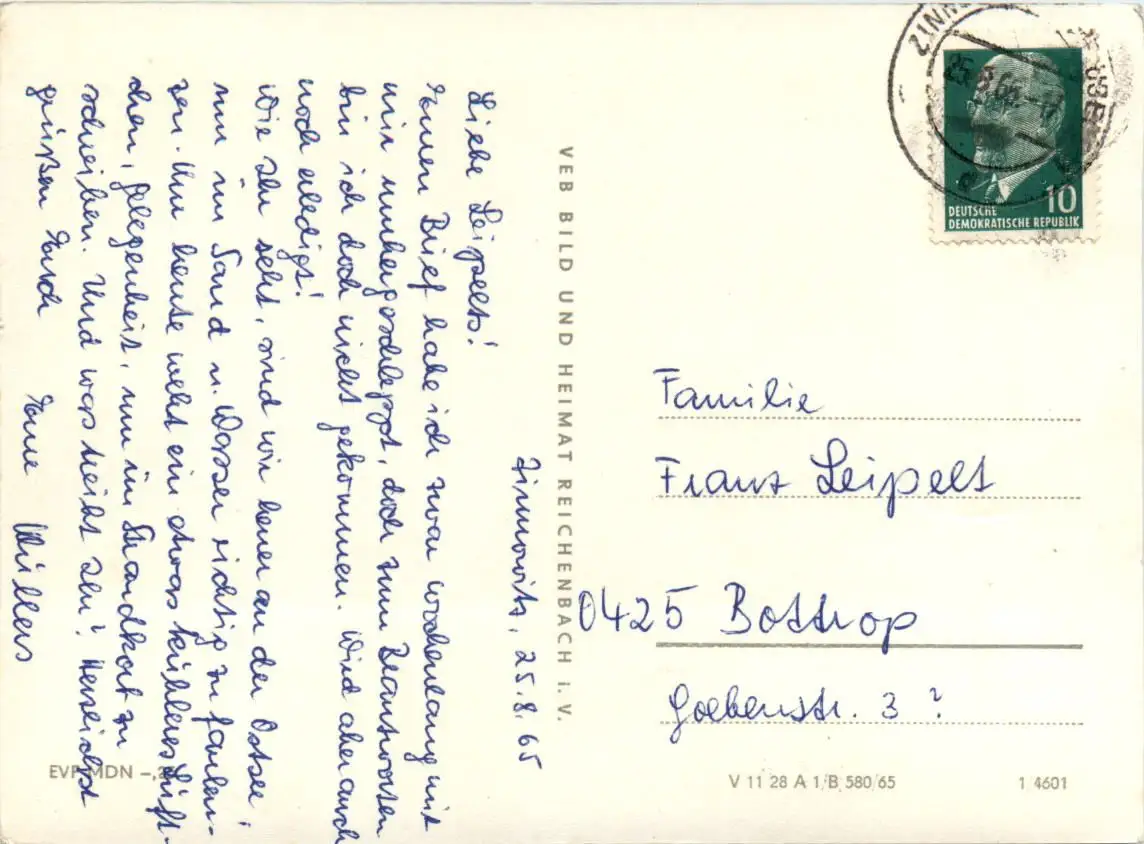 Zinnowitz, 25.8.65
Liebe Leipelts!
Euren Brief habe ich zwar wochenlang mit
mir umhergeschleppt, doch zum Beantworten
bin ich doch nicht gekommen. Wird aber auch
noch erledigt!
Wie Ihr seht, sind wir heuer an der Ostsee,
um im Sand u. Wasser richtig zu faulen-
zen. Nur heute weht ein etwas kühleres Lüft-
chen, Gelegenheit, um im Strandkorb zu
schreiben. Und was treibt Ihr? Herzlichst
grüßen Euch Eure Müllers
VEB BILD UND HEIMAT REICHENBACH i. V.
ZINN
25.8.65-17
USE
a
10
DEUTSCHE
DEMOKRATISCHE REPUBLIK
Familie
Franz Leipelt
0425 Bottrop
Goebenstr. 3 ?
EVP MDN –,
V 11 28 A 1/B 580/65
1 4601